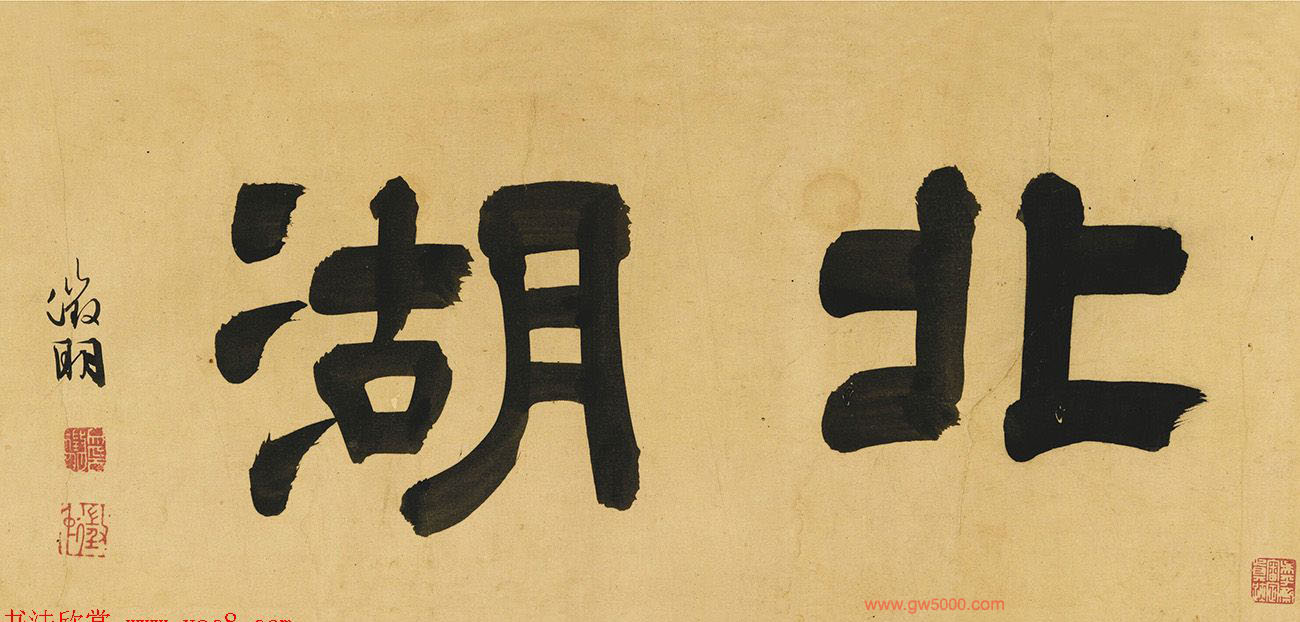 北湖
徵明
www.gw5000.com
书法欣赏